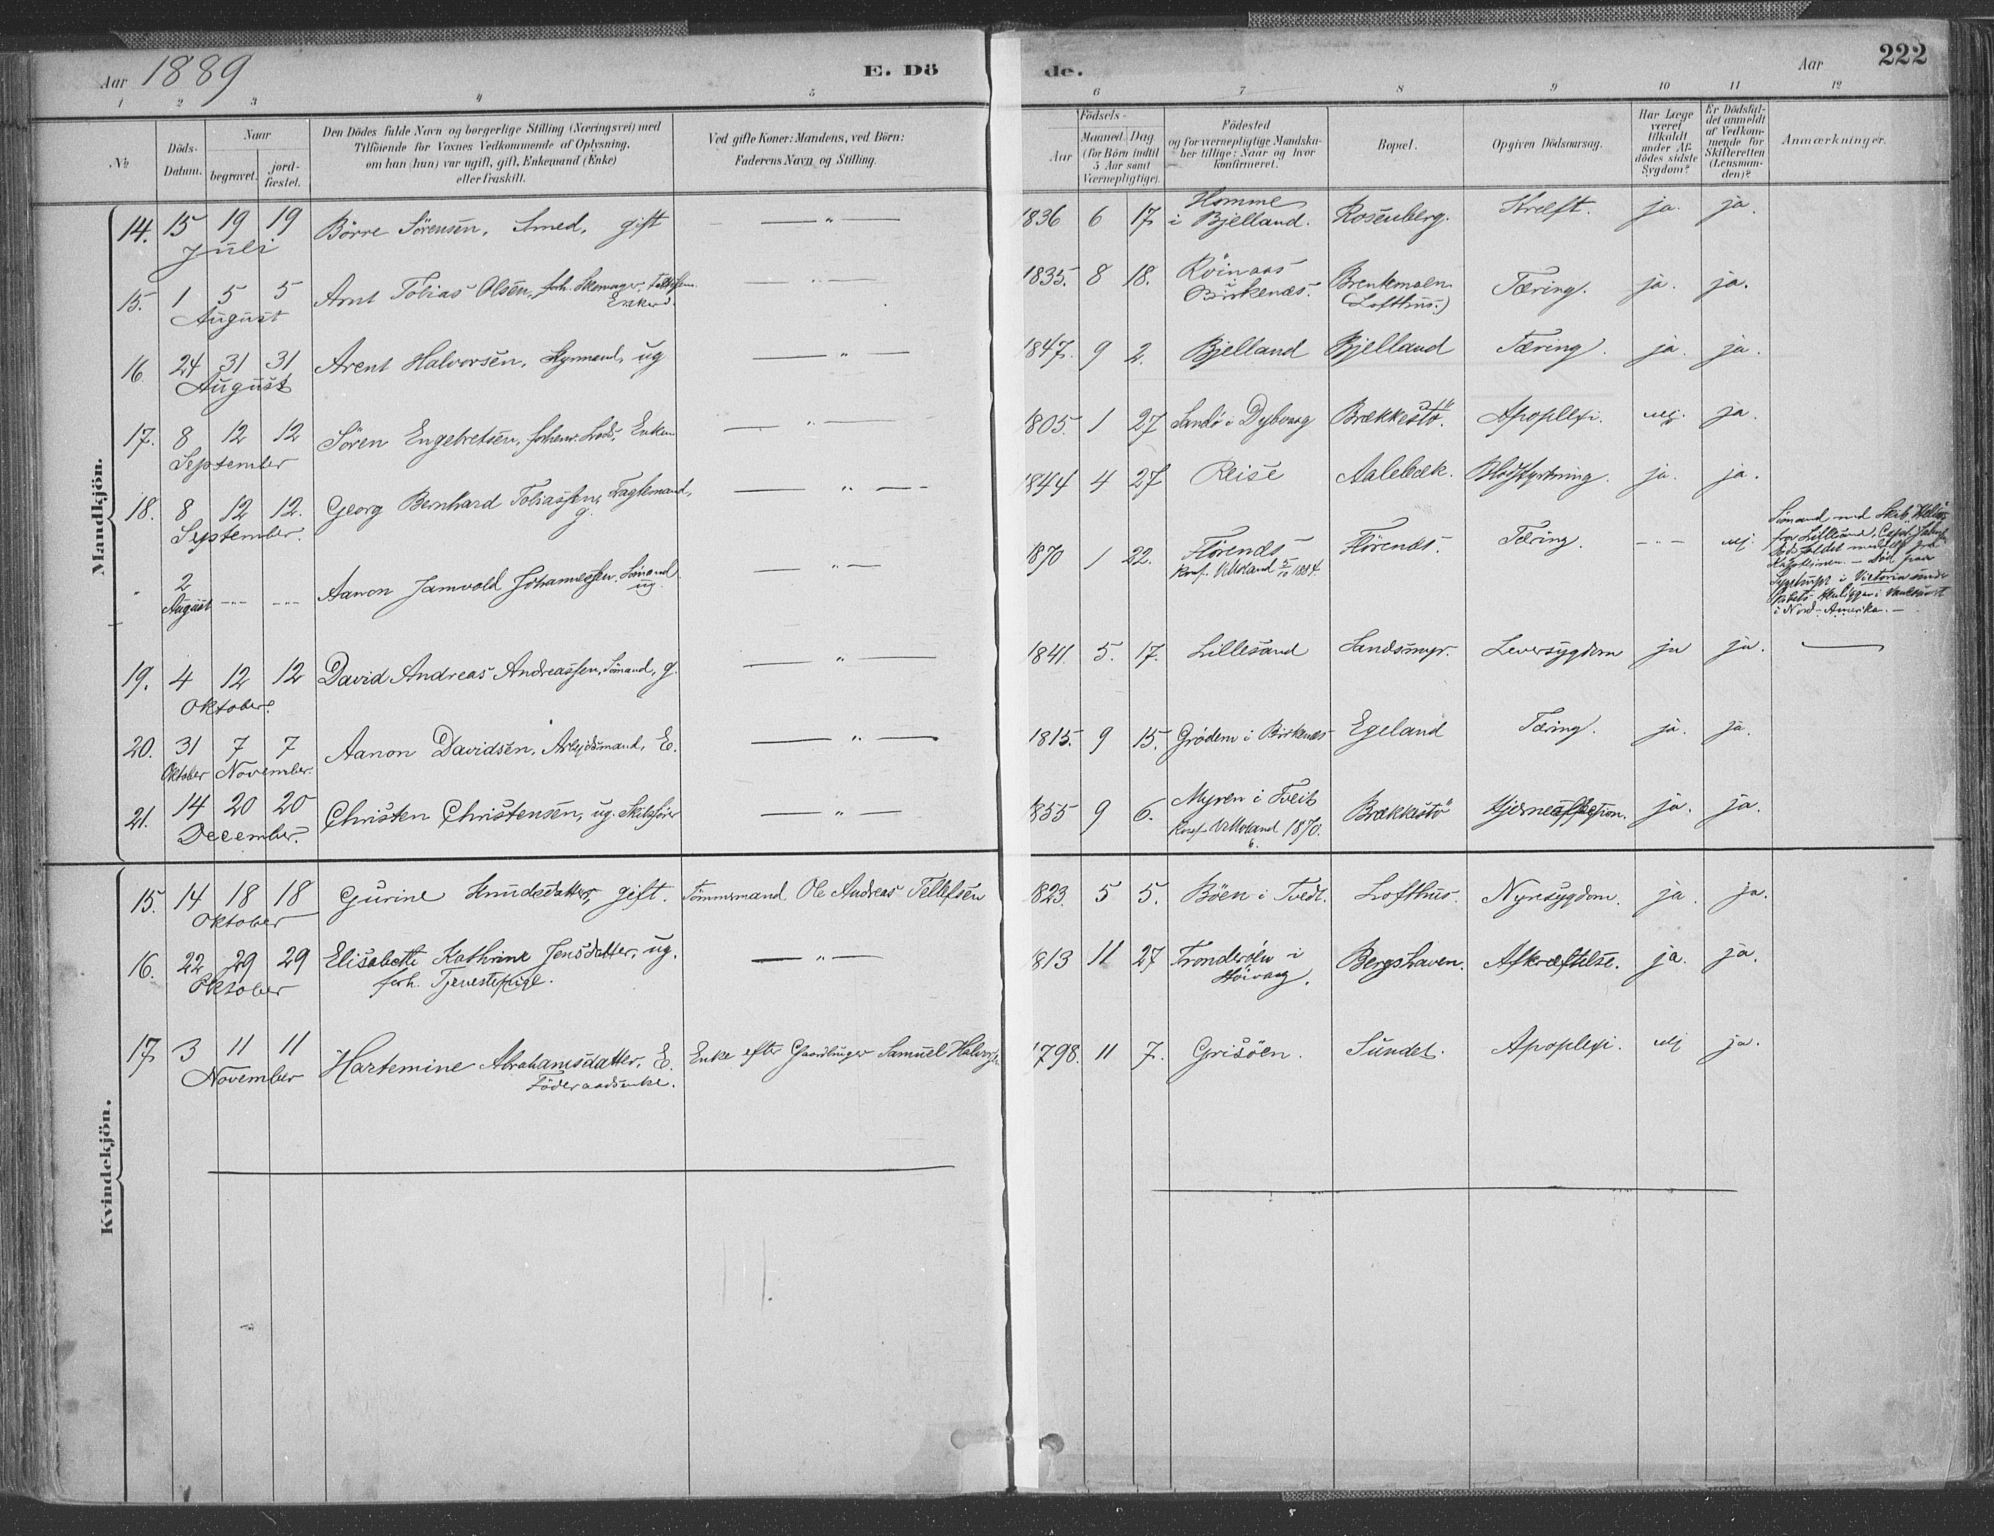 Aar 1889
E. Dö
de.
Aar
222
1 2 3 4 5 6 7 8 9 10 11 12
No
Döds-
Datum.
Naar
begravet.
jord-
fæstet.
Den Dödes fulde Navn og borgerlige Stilling (Næringsvei) med
Tilföiende for Voxnes Vedkommende af Oplysning,
om han (hun) var ugift, gift, Enkemand (Enke)
eller fraskilt.
Ved gifte Koner: Mandens, ved Börn:
Faderens Navn og Stilling.
Födsels-
Aar
Maaned. Dag
(for Börn indtil
5 Aar samt
Værnepligtige).
Födested
og for værnepligtige Mandska-
ber tillige: Naar og hvor
konfirmeret.
Bopæl.
Opgiven Dödsaarsag.
Har Læge
været
tilkaldt
under Af-
dödes sidste
Sygdom?
Er Dödsfal-
det anmeldt
af Vedkom-
mende for
Skifteretten
(Lensman-
den)?
Anmærkninger.
Mandkjön.
14. 15 19 19 Börre Sörensen, Smed, gift — " — 1836 6 17 Homme
Juli i Bjelland. Rosenberg. Kræft. ja. ja.
15. 1 5 5 Arnt Tobias Olsen, forh. — " — 1835. 8 18. Röinaas
August Enkem. Birkenæs. (Lofthus.) Tæring. ja. ja.
16 24 31 31 Arent Halvorsen, ug — " — 1847. 9 2. Bjelland Bjelland Tæring. ja. ja.
August
17. 8 12 12 Sören Engebretsen, Lods, Enkem — " — 1805. 1 27 Sandö i Dybvaag Brækkestö. Apoplexi. nej. ja.
September
18. 8 12 12. Georg Bernhard Tobiassen, — " — 1844 4 27 Reise Aalebæk. Blodstyrtning. ja. ja.
September. g.
" 2 Aanon Jamvold Johannessen, Sömand — " — 1870 1 22. Flörenæs Flörenæs. Tæring. --- nej.
August --- --- ug. Konf. V. Moland 5/10 1884.
Sömand med Skib
fra Lillesand, Capt.
Dödsfaldet meddelt fra
— död paa
Sygehuset i Victoria
i Nord-Amerika. —
19. 4 12 12 David Andreas Andreassen, Sömand, g. — " — 1841. 5. 17. Lillesand Sandsmyr. Leversygdom ja ja. —
Oktober.
20. 31 7 7 Aanon Davidsen, Arbejdsmand, E. — " — 1815. 9 15. Grödem i Birkenæs Egeland Tæring. ja. ja.
Oktober November.
21. 14 20 20 Christen Christensen, ug. Skibsförer — " — 1855 9 6. Myren i Tveit Brækkestö Hjerneaffektion. ja. ja.
December. Konf. V. Moland 1870.
Kvindekjön.
15. 14 18 18 Gurine Knudsdatter, gift. Tömmermand Ole Andreas Tellefsen 1823. 5 5. Böen i Tvedt. Lofthus. Nyresygdom. ja. ja.
Oktober
16. 22 29 29 Elisabeth Kathrine Jensdatter, ug. — " — 1813 11 27 Tronderöen i Bergshaven. Afkræftelse. ja. ja.
Oktober forh. Tjenestepige. Höivaag.
17 3 11 11 Hartemine Abrahamsdatter, E. Enke efter Gaardbruger Samuel Halvorsen 1798. 11 7. Grisöen. Sundet. Apoplexi. nej ja.
November Föderaadsenke.